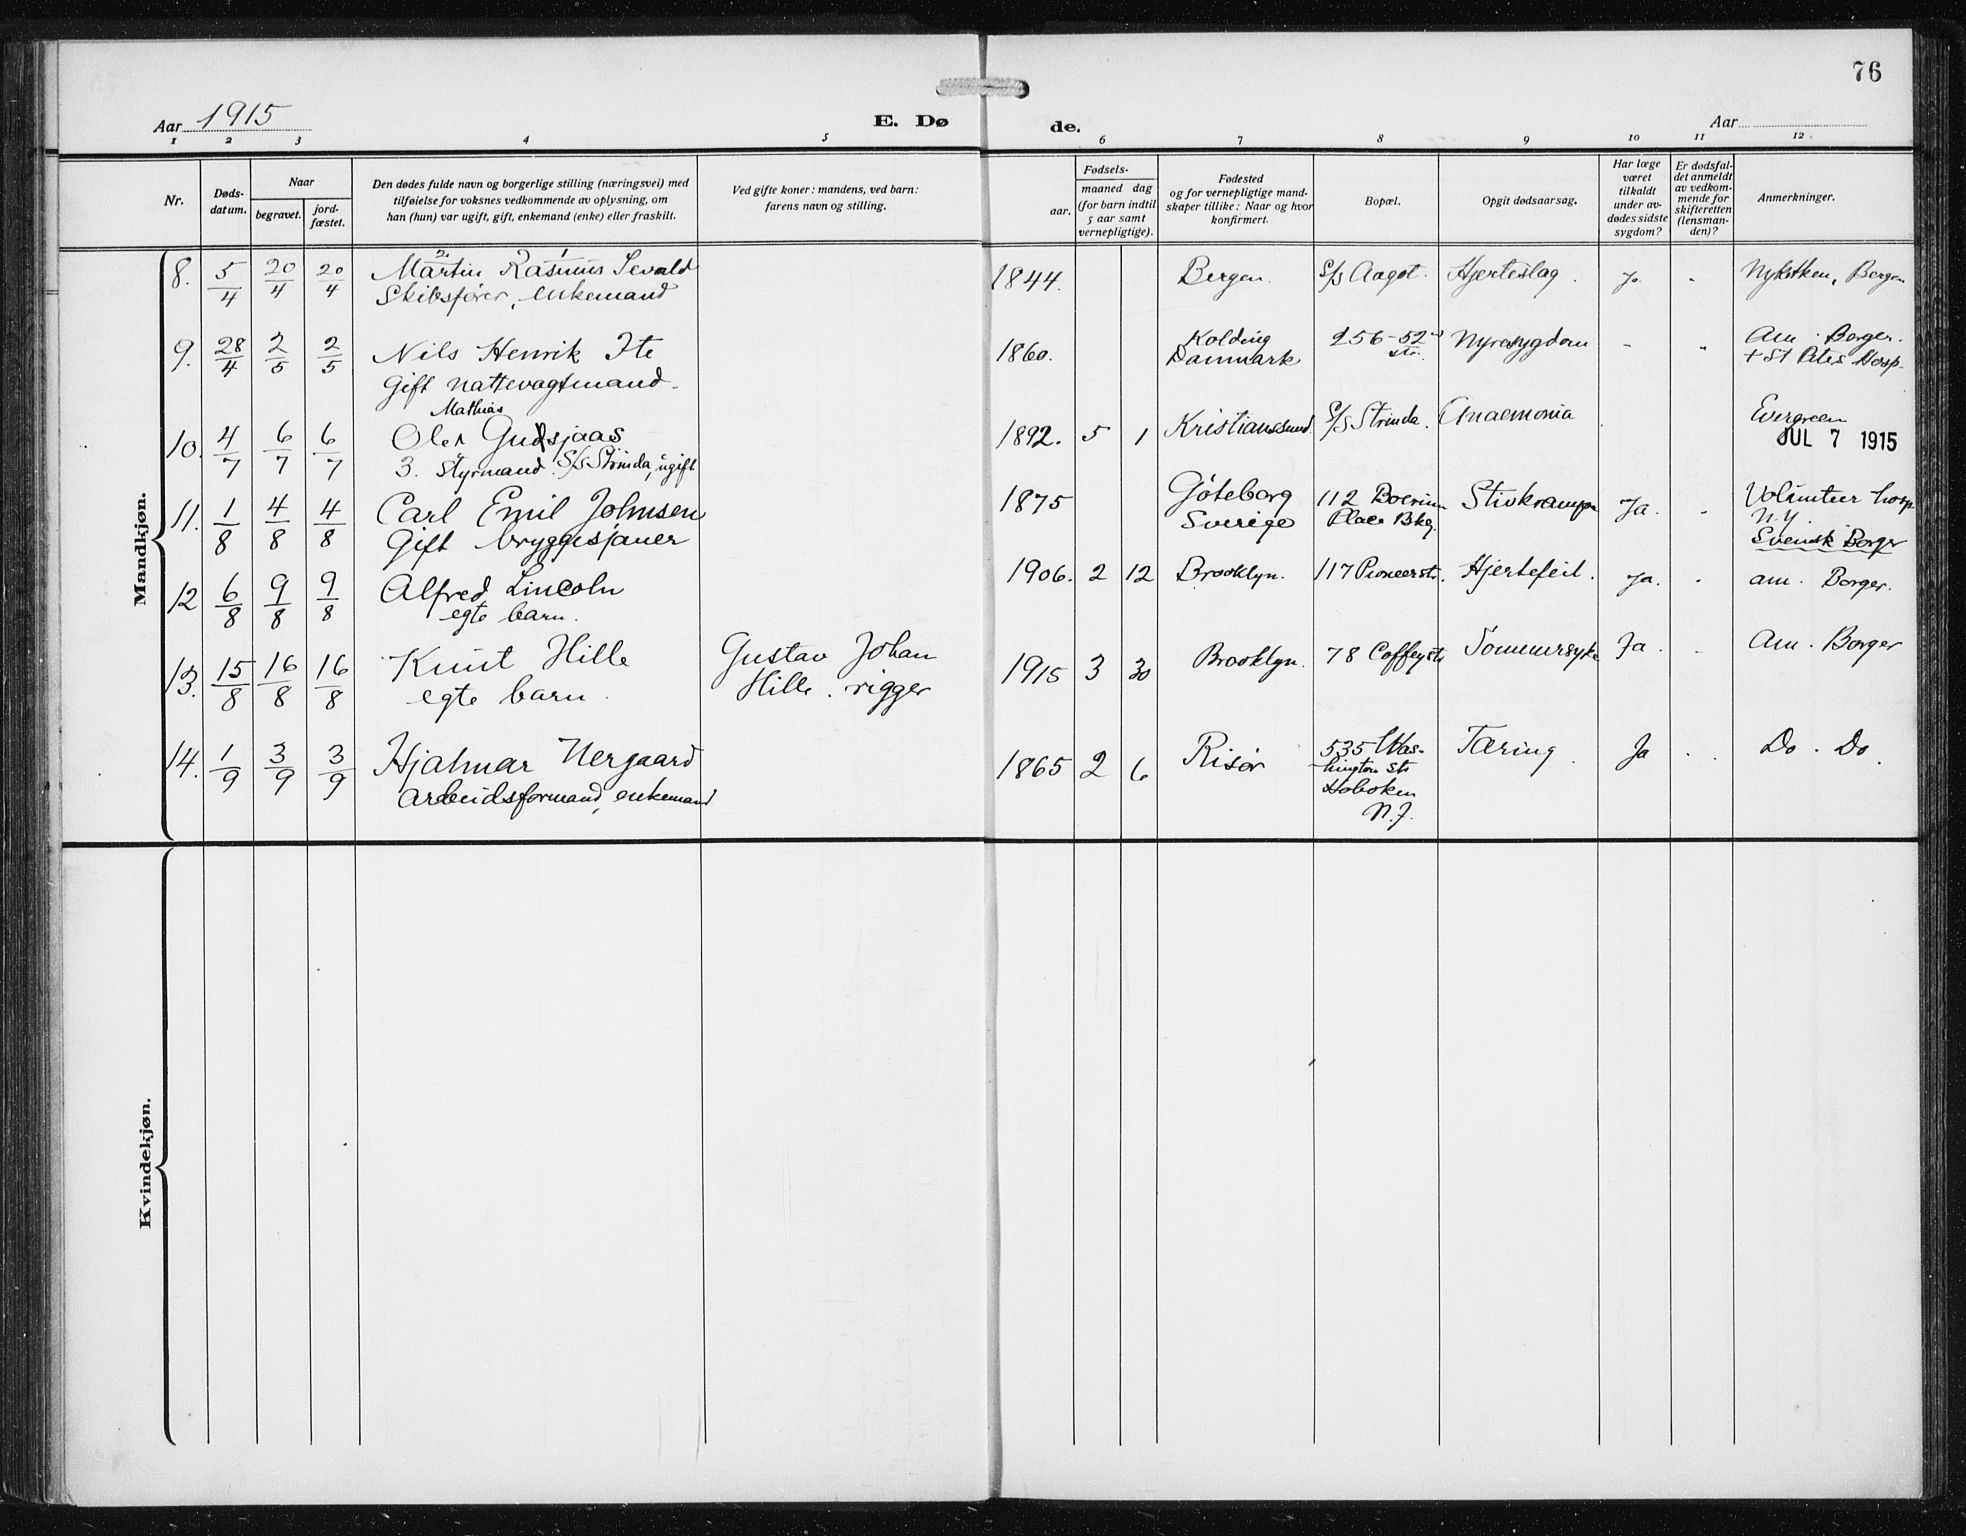 76
Aar 1915
E. Dø
de.
Aar
1 2 3 4 5 6 7 8 9 10 11 12
Nr.
Døds-
datum.
Naar
begravet.
jord-
fæstet.
Den dødes fulde navn og borgerlige stilling (næringsvei) med
tilføielse for voksnes vedkommende av oplysning, om
han (hun) var ugift, gift, enkemand (enke) eller fraskilt.
Ved gifte koner: mandens, ved barn:
farens navn og stilling.
Fødsels-
aar.
maaned dag
(for barn indtil
5 aar samt
vernepligtige).
Fødested
og for vernepligtige mand-
skaper tillike: Naar og hvor
konfirmert.
Bopæl.
Opgit dødsaarsag.
Har læge
været
tilkaldt
under av-
dødes sidste
sygdom?
Er dødsfal-
det anmeldt
av vedkom-
mende for
skifteretten
(lensman-
den)?
Anmerkninger.
Mandkjøn.
8. 5/4 20/4 20/4 Martin Rasmus Sevald 1844. Bergen. S/S Aagot. Hjerteslag. Ja. " Bergen
2. 1
Skibsfører, enkemand
9. 28/4 2/5 2/5 Nils Henrik Ite 1860. Kolding 256-52nd Nyresygdom - " Am. Borger.
Danmark str. + St Peters Hosp.
Gift nattevagtmand.
Mathias
10. 4/7 6/7 6/7 Oler Gudsjaas 1892. 5 1 Kristianssund S/S Strinda. Anaemonia Evergreen
JUL 7 1915
3. Styrmand S/S Strinda, ugift
11. 1/8 4/8 4/8 Carl Emil Johnsen 1875 Göteborg 112 Boerum Stivkrampe Ja. " Volunteer hosp.
Sverige Place Bkg. N.Y.
Gift bryggesjauer Svensk Borger
12 6/8 9/8 9/8 Alfred Lincoln 1906. 2 12 Brooklyn. 117 Pioneerstr. Hjertefeil. Ja. " am. Borger.
egte barn.
13. 15/8 16/8 16/8 Knut Hille Gustav Johan 1915 3 30 Brooklyn. 78 Coffeystr Sommersyke Ja. . Am. Borger
egte barn. Hille. rigger
14. 1/9 3/9 3/9 Hjalmar Nergaard 1865 2 6 Risør 535 Was- Tæring. Ja . Do. Do.
hington str
Arbeidsformand, enkemand Hoboken
N.J.
Kvindekjøn.